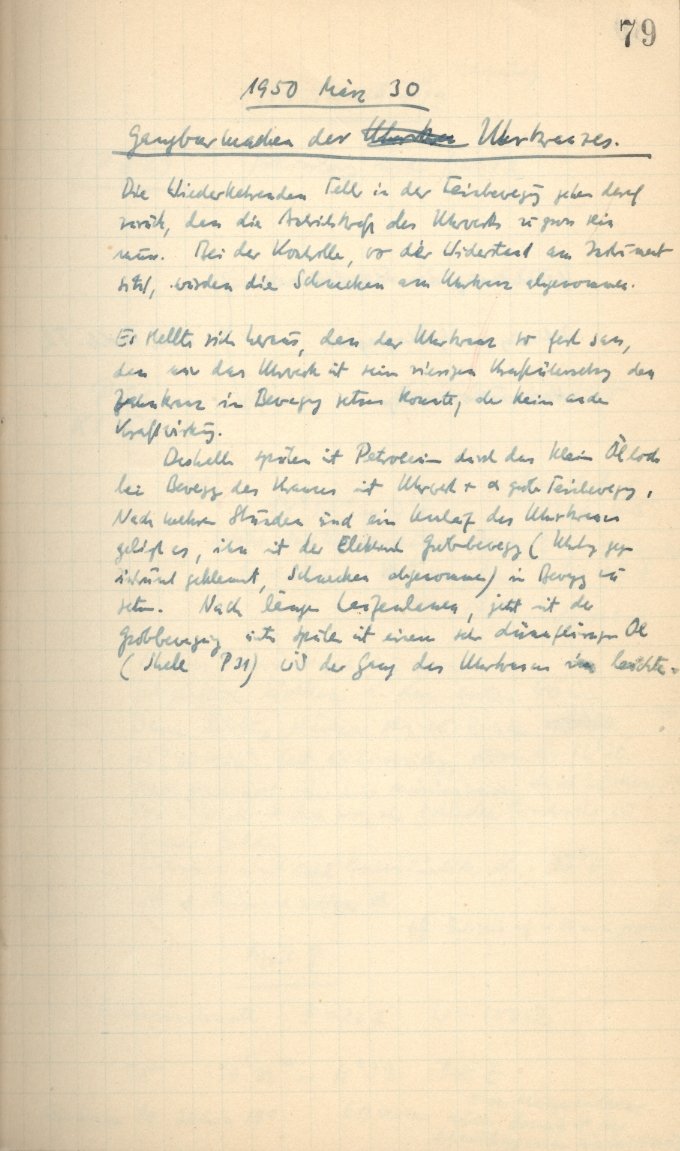 79
1950 März 30
Gangbarmachen der Uhrkranzes.
Die Wiederkehrenden in der Feinbewegung gehen darauf
zurück, dass die Antriebskraft des Uhrwerks zu gross sein
muss. Bei der Kontrolle, wo der Widerstand am Instrument
sitzt, wurden die Schnecken am Uhrkranz abgenommen.
Es stellte sich heraus, dass der Uhrkranz so fest sass,
dass nur das Uhrwerk mit sein riesigen Kraftüberschuss den
in Bewegung setzen konnte, kein
Kraftwirkung.
Deshalb spülen mit Petroleum durch das kleine Ölloch
bei Bewegg des Kranzes mit Uhrwerk + α Feinbewegung.
Nach mehren Stunden und ein Umlauf des Uhrkranzes
gelingt es, ihn mit der Grobbewegg (
geklemmt, Schnecken abgenommen) in Bewegg zu
setzen. Nach langen Laufenlassen, jetzt mit der
Grobbewegung spülen mit einem sehr dünnflüssigen Öl
(Shell P31) wird der Gang des Uhrkranzes leichter.